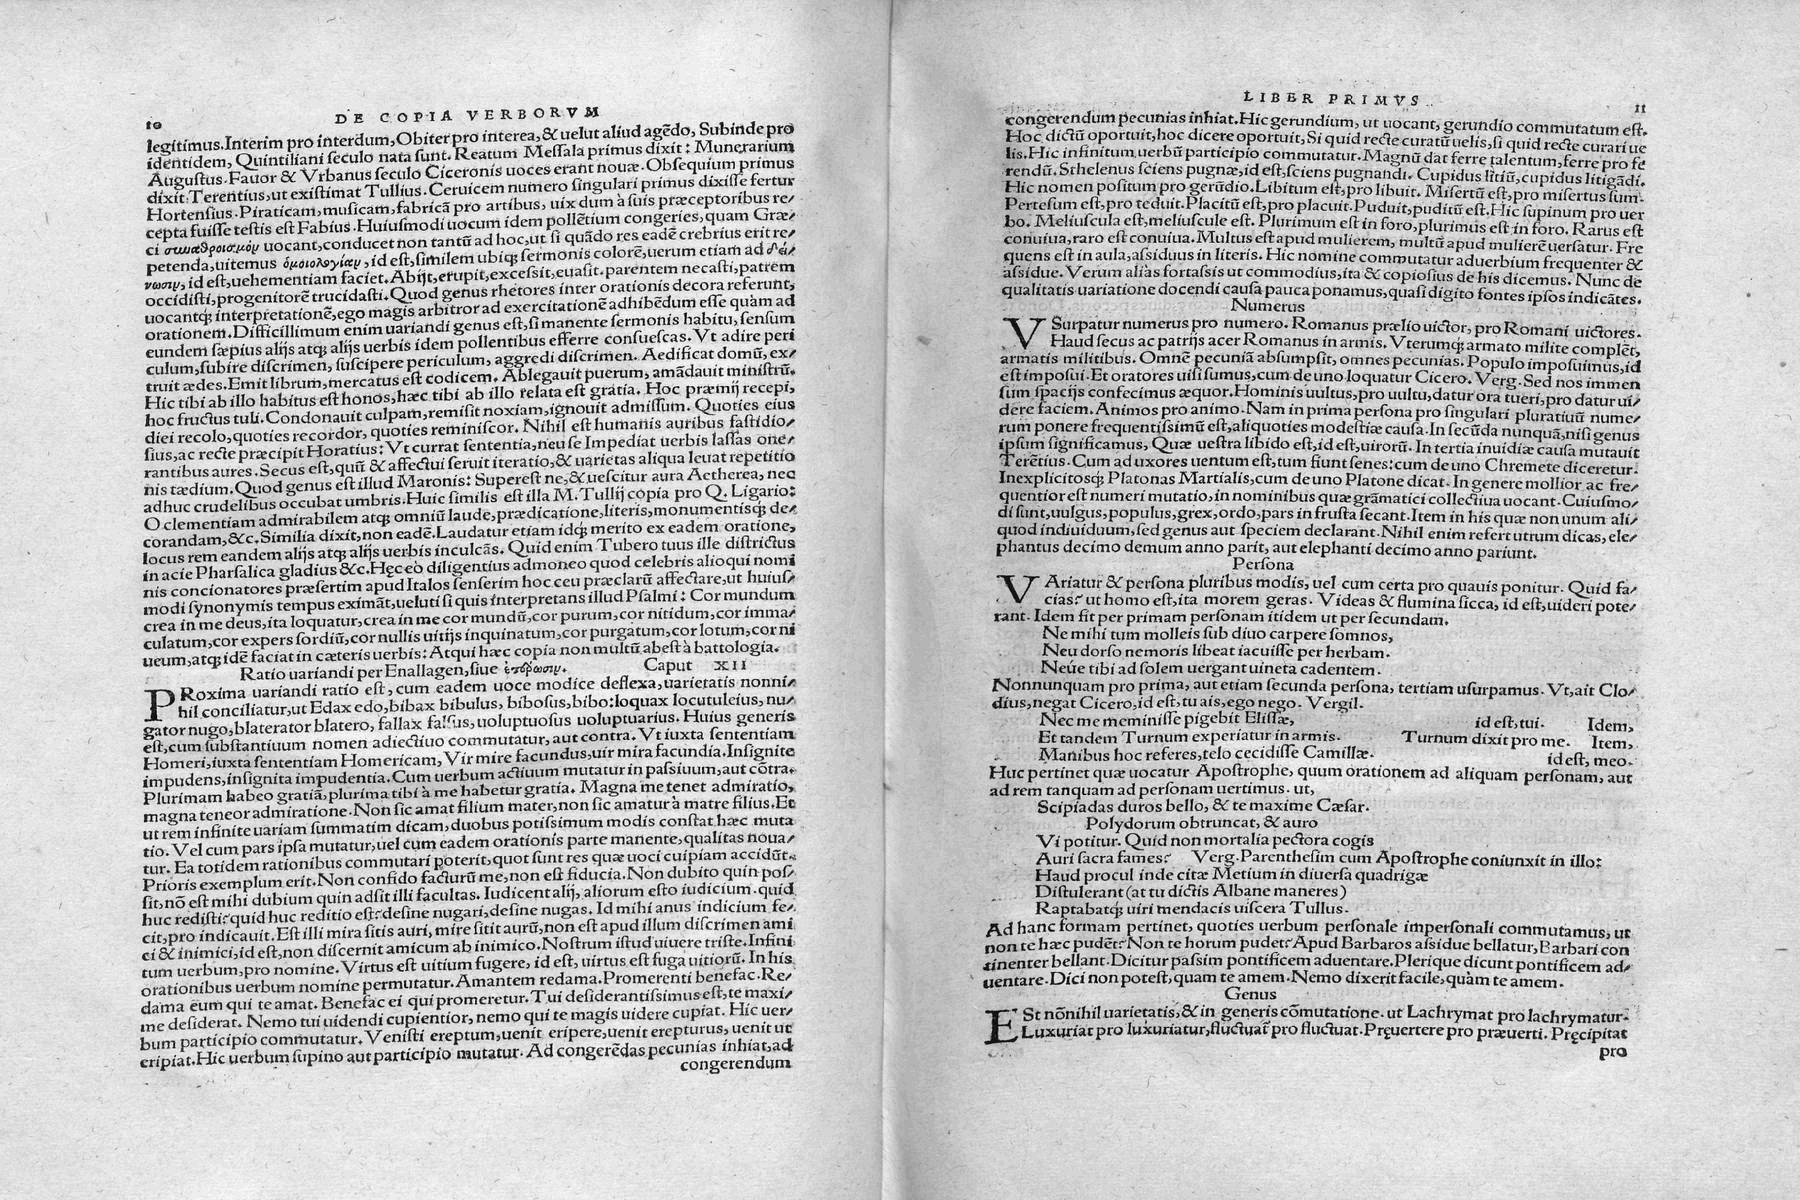 10
DE COPIA VERBORVM
legitimus. Interim pro interdum, Obiter pro interea, & uelut aliud agẽdo, Subinde pro
identidem, Quintiliani seculo nata sunt. Reatum Messala primus dixit: Munerarium
Augustus. Fauor & Vrbanus seculo Ciceronis uoces erant nouæ. Obsequium primus
dixit Terentius, ut existimat Tullius. Ceruicem numero singulari primus dixisse fertur
Hortensius. Piraticam, musicam, fabricã pro artibus, uix dum à suis præceptoribus re⸗
cepta fuisse testis est Fabius. Huiusmodi uocum idem pollẽtium congeries, quam Græ⸗
ci συναθροισμὸμ uocant, conducet non tantũ ad hoc, ut si quãdo res eadẽ crebrius erit re⸗
petenda, uitemus ὁμοιολογίαμ, id est, similem ubiq; sermonis colorẽ, uerum etiam ad δεί⸗
νωσιμ, id est, uehementiam faciet. Abijt, erupit, excessit, euasit. parentem necasti, patrem
occidisti, progenitorẽ trucidasti. Quod genus rhetores inter orationis decora referunt,
uocantq; interpretationẽ, ego magis arbitror ad exercitationẽ adhibẽdum esse quàm ad
orationem. Difficillimum enim uariandi genus est, si manente sermonis habitu, sensum
eundem sæpius alijs atq; alijs uerbis idem pollentibus efferre consuescas. Vt adire peri
culum, subire discrimen, suscipere periculum, aggredi discrimen. Aedificat domũ, ex⸗
truit ædes. Emit librum, mercatus est codicem. Ablegauit puerum, amãdauit ministrũ.
Hic tibi ab illo habitus est honos, hæc tibi ab illo relata est gratia. Hoc præmij recepi,
hoc fructus tuli. Condonauit culpam, remisit noxiam, ignouit admissum. Quoties eius
diei recolo, quoties recordor, quoties reminiscor. Nihil est humanis auribus fastidio⸗
sius, ac recte præcipit Horatius: Vt currat sententia, neu se Impediat uerbis lassas one⸗
rantibus aures. Secus est, quũ & affectui seruit iteratio, & uarietas aliqua leuat repetitio
nis tædium. Quod genus est illud Maronis: Superest ne, & uescitur aura Aetherea, nec
adhuc crudelibus occubat umbris. Huic similis est illa M. Tullij copia pro Q. Ligario:
O clementiam admirabilem atq; omniũ laude, prædicatione, literis, monumentisq; de⸗
corandam, &c. Similia dixit, non eadẽ. Laudatur etiam idq; merito ex eadem oratione,
locus rem eandem alijs atq; alijs uerbis inculcãs. Quid enim Tubero tuus ille districtus
in acie Pharsalica gladius &c. Hęc eò diligentius admoneo quod celebris alioqui nomi
nis concionatores præsertim apud Italos senserim hoc ceu præclarũ affectare, ut huius⸗
modi synonymis tempus eximãt, ueluti si quis interpretans illud Psalmi: Cor mundum
crea in me deus, ita loquatur, crea in me cor mundũ, cor purum, cor nitidum, cor imma⸗
culatum, cor expers sordiũ, cor nullis uitijs inquinatum, cor purgatum, cor lotum, cor ni
ueum, atq; idẽ faciat in cæteris uerbis: Atqui hæc copia non multũ abest à battologia.
Ratio uariandi per Enallagen, siue ἑτέρωσιμ. Caput XII
PRoxima uariandi ratio est, cum eadem uoce modice deflexa, uarietatis nonni⸗
hil conciliatur, ut Edax edo, bibax bibulus, bibosus, bibo: loquax locutuleius, nu⸗
gator nugo, blaterator blatero, fallax falsus, uoluptuosus uoluptuarius. Huius generis
est, cum substantiuum nomen adiectiuo commutatur, aut contra. Vt iuxta sententiam
Homeri, iuxta sententiam Homericam, Vir mire facundus, uir mira facundia. Insignite
impudens, insignita impudentia. Cum uerbum actiuum mutatur in passiuum, aut cõtra.
Plurimam habeo gratiã, plurima tibi à me habetur gratia. Magna me tenet admiratio,
magna teneor admiratione. Non sic amat filium mater, non sic amatur à matre filius. Et
ut rem infinite uariam summatim dicam, duobus potissimum modis constat hæc muta
tio. Vel cum pars ipsa mutatur, uel cum eadem orationis parte manente, qualitas noua⸗
tur. Ea totidem rationibus commutari poterit, quot sunt res quæ uoci cuipiam accidũt.
Prioris exemplum erit. Non confido facturũ me, non est fiducia. Non dubito quin pos⸗
sit, nõ est mihi dubium quin adsit illi facultas. Iudicent alij, aliorum esto iudicium. quid
huc redisti? quid huc reditio est? desine nugari, desine nugas. Id mihi anus indicium fe⸗
cit, pro indicauit. Est illi mira sitis auri, mire sitit aurũ, non est apud illum discrimen ami
ci & inimici, id est, non discernit amicum ab inimico. Nostrum istud uiuere triste. Infini
tum uerbum, pro nomine. Virtus est uitium fugere, id est, uirtus est fuga uitiorũ. In his
orationibus uerbum nomine permutatur. Amantem redama. Promerenti benefac. Re⸗
dama eum qui te amat. Benefac ei qui promeretur. Tui desiderantissimus est, te maxi⸗
me desiderat. Nemo tui uidendi cupientior, nemo qui te magis uidere cupiat. Hic uer⸗
bum participio commutatur. Venisti ereptum, uenit eripere, uenit erepturus, uenit ut
eripiat. Hic uerbum supino aut participio mutatur. Ad congerẽdas pecunias inhiat, ad
congerendum
LIBER PRIMVS
11
congerendum pecunias inhiat. Hic gerundium, ut uocant, gerundio commutatum est.
Hoc dictũ oportuit, hoc dicere oportuit, Si quid recte curatũ uelis, si quid recte curari ue
lis. Hic infinitum uerbũ participio commutatur. Magnũ dat ferre talentum, ferre pro fe
rendũ. Sthelenus sciens pugnæ, id est, sciens pugnandi. Cupidus litiũ, cupidus litigãdi.
Hic nomen positum pro gerũdio. Libitum est, pro libuit. Misertũ est, pro misertus sum.
Pertesum est, pro teduit. Placitũ est, pro placuit. Puduit, puditũ est. Hic supinum pro uer
bo. Meliuscula est, meliuscule est. Plurimum est in foro, plurimus est in foro. Rarus est
conuiua, raro est conuiua. Multus est apud mulierem, multũ apud mulierẽ uersatur. Fre
quens est in aula, assiduus in literis. Hic nomine commutatur aduerbium frequenter &
assidue. Verum aliàs fortassis ut commodius, ita & copiosius de his dicemus. Nunc de
qualitatis uariatione docendi causa pauca ponamus, quasi digito fontes ipsos indicãtes.
Numerus
VSurpatur numerus pro numero. Romanus prælio uictor, pro Romani uictores.
Haud secus ac patrijs acer Romanus in armis. Vterumq; armato milite complẽt,
armatis militibus. Omnẽ pecuniã absumpsit, omnes pecunias. Populo imposuimus, id
est imposui. Et oratores uisi sumus, cum de uno loquatur Cicero. Verg. Sed nos immen
sum spacijs confecimus æquor. Hominis uultus, pro uultu, datur ora tueri, pro datur ui⸗
dere faciem. Animos pro animo. Nam in prima persona pro singulari pluratiuũ nume⸗
rum ponere frequentissimũ est, aliquoties modestiæ causa. In secũda nunquã, nisi genus
ipsum significamus, Quæ uestra libido est, id est, uirorũ. In tertia inuidiæ causa mutauit
Terẽtius. Cum ad uxores uentum est, tum fiunt senes: cum de uno Chremete diceretur.
Inexplicitosq; Platonas Martialis, cum de uno Platone dicat. In genere mollior ac fre⸗
quentior est numeri mutatio, in nominibus quæ grãmatici collectiua uocant. Cuiusmo⸗
di sunt, uulgus, populus, grex, ordo, pars in frusta secant. Item in his quæ non unum ali⸗
quod indiuiduum, sed genus aut speciem declarant. Nihil enim refert utrum dicas, ele⸗
phantus decimo demum anno parit, aut elephanti decimo anno pariunt.
Persona
VAriatur & persona pluribus modis, uel cum certa pro quauis ponitur. Quid fa⸗
cias? ut homo est, ita morem geras. Videas & flumina sicca, id est, uideri pote⸗
rant. Idem fit per primam personam itidem ut per secundam.
Ne mihi tum molleis sub diuo carpere somnos,
Neu dorso nemoris libeat iacuisse per herbam.
Neúe tibi ad solem uergant uineta cadentem.
Nonnunquam pro prima, aut etiam secunda persona, tertiam usurpamus. Vt, ait Clo⸗
dius, negat Cicero, id est, tu ais, ego nego. Vergil.
Nec me meminisse pigebit Elissæ, id est, tui. Idem,
Et tandem Turnum experiatur in armis. Turnum dixit pro me. Item,
Manibus hoc referes, telo cecidisse Camillæ. id est, meo.
Huc pertinet quæ uocatur Apostrophe, quum orationem ad aliquam personam, aut
ad rem tanquam ad personam uertimus. ut,
Scipiadas duros bello, & te maxime Cæsar.
Polydorum obtruncat, & auro
Vi potitur. Quid non mortalia pectora cogis
Auri sacra fames? Verg. Parenthesim cum Apostrophe coniunxit in illo:
Haud procul inde citæ Metium in diuersa quadrigæ
Distulerant (at tu dictis Albane maneres)
Raptabatq; uiri mendacis uiscera Tullus.
Ad hanc formam pertinet, quoties uerbum personale impersonali commutamus, ut
non te hæc pudẽt? Non te horum pudet? Apud Barbaros assidue bellatur, Barbari con
tinenter bellant. Dicitur passim pontificem aduentare. Plerique dicunt pontificem ad⸗
uentare. Dici non potest, quam te amem. Nemo dixerit facile, quàm te amem.
Genus
ESt nõnihil uarietatis, & in generis cõmutatione. ut Lachrymat pro lachrymatur.
Luxuriat pro luxuriatur, fluctuat pro fluctuat. Pręuertere pro præuerti. Pręcipitat
pro